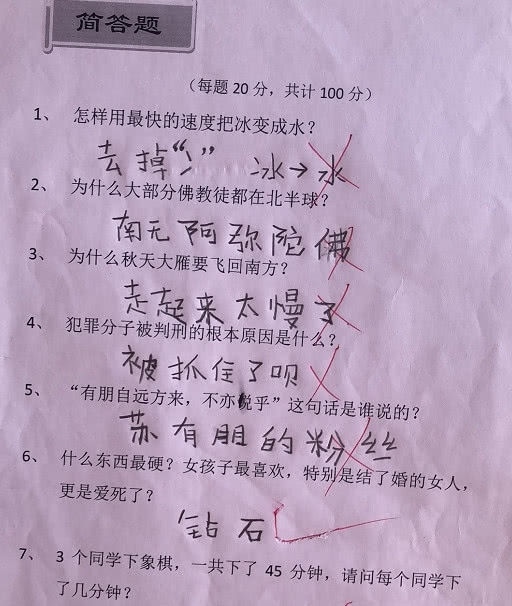 简答题
（每题 20 分，共计 100 分）
1、 怎样用最快的速度把冰变成水？
去掉“冫” 冰→水
2、 为什么大部分佛教徒都在北半球？
南无阿弥陀佛
3、 为什么秋天大雁要飞回南方？
走起来太慢了
4、 犯罪分子被判刑的根本原因是什么？
被抓住了呗
5、 “有朋自远方来，不亦悦乎”这句话是谁说的？
苏有朋的粉丝
6、 什么东西最硬？女孩子最喜欢，特别是结了婚的女人，
更是爱死了？
钻石
7、 3 个同学下象棋，一共下了 45 分钟，请问每个同学下
了几分钟？